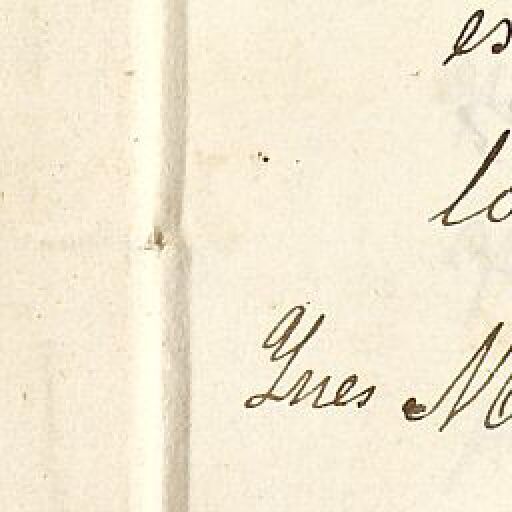 es
lo
Ynes M